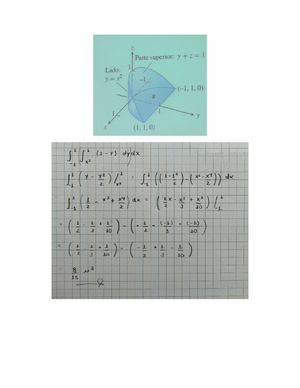 z
Parte superior: y + z = 1
1
Lado:
y = x²
-1
(-1, 1, 0)
R
1
1
y
x
(1, 1, 0)
∫₋₁¹ ∫ₓ²¹ (1 - y) dy dx
∫₋₁¹ (y - y²/2) |ₓ²¹ = ∫₋₁¹ ((1 - 1²/2) - (x² - x⁴/2)) dx
∫₋₁¹ (1/2 - x² + x⁴/2) dx = (1/2 x - x³/3 + x⁵/10) |₋₁¹
= (1/2 - 1/3 + 1/10) - (-1/2 - (-1)/3 + (-1)/10)
= (1/2 - 1/3 + 1/10) - (-1/2 + 1/3 - 1/10)
= 8/15 u³